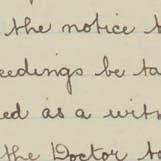 the notice t
eedings be ta
ed as a witn
the Doctor to